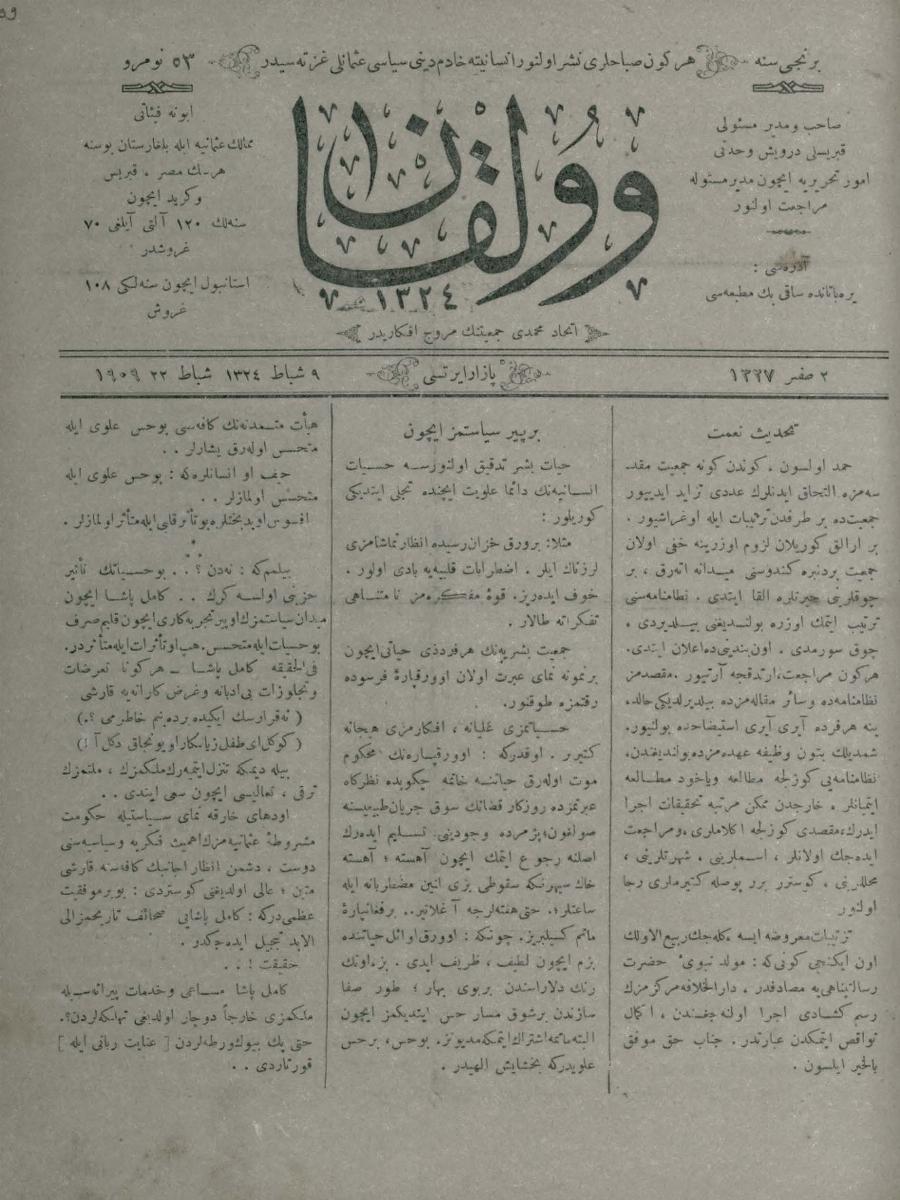 برنجی سنه
هر کون صباحلری نشر اولنور انسانیته خادم دینی سیاسی عثمانلی غزته سیدر
٥٣ نومرو
صاحب و مدیر مسئولی
قبریسلی درویش وحدتی
امور تحریریه ایچون مدیر مسئوله
مراجعت اولنور
آدره‌سی :
یره‌باتانده ساقی بك مطبعه‌سی
وولقان
١٣٢٤
اتحاد محمدی جمعیتنك مروج افكاریدر
ابونه فیئاتی
ممالك عثمانیه ایله بلغارستان بوسنه
هرسك مصر ، قبریس
وكرید ایچون
سنه‌لك ١٢٠ آلتی آیلغی ٧٠
غروشدر
استانبول ایچون سنه‌لكی ١٠٨
غروش
٢ صفر ١٣٢٧
پازار ایرتسی
٩ شباط ١٣٢٤ شباط ٢٢ ١٩٠٩
تحدیث نعمت
حمد اولسون ، كوندن كونه جمعیت مقد-
سه‌مزه التحاق ایدنلرك عددی تزاید ایدییور
جمعیت‌ده بر طرفدن ترتیبات ایله اوغراشیور .
بر ارالق كوریلان لزوم اوزرینه خفی اولان
جمعیت بردنبره كندوسنی میدانه اته‌رق ، بر
چوقلرینی حیرتلره القا ایتدی . نظامنامه‌سنی
ترتیب ایتمك اوزره بولندیغنی بیلدیردی .
چوق سورمدی . اون بندینی‌ده اعلان ایتدی.
هركون مراجعت، ارتدقجه آرتیور . مقصدمز
نظامنامه‌ده وسائر مقاله‌مزده بیلدیرلدیكی حالده
ینه هرفرده آیری آیری استیضاحده بولنیور.
شمدیلك بتون وظیفه عهده‌مزده بولندیغندن،
نظامنامه‌یی كوزلجه مطالعه ویاخود مطالعه
ایتمیانلر . خارجدن ممكن مرتبه تحقیقات اجرا
ایدرك، مقصدی كوزلجه اكلاملری، ومراجعت
ایده‌جك اولانلر ، اسملرینی ، شهرتلرینی ،
محللرینی ، كوسترر برر پوصله كتیرمه‌لری رجا
اولنور
ترتیبات معروضه ایسه ، كله‌جك ربیع الاولك
اون ایكنجی كونی‌كه : مولد نبوی حضرت
رسالتپناهی‌یه مصادفدر ، دارالخلافه مركزمزك
رسم كشادی اجرا اولنه‌جغندن ، اكمال
نواقص ایتمكدن عبارتدر . جناب حق موفق
بالخیر ایلسون .
بر پیر سیاستمز ایچون
حیات بشر تدقیق اولنورسه حسیات
انسانیه‌نك دائما علویت ایچنده تجلی ایتدیكی
كوریلور :
مثلا: برورق خزان رسیده انظار تماشامزی
لرزناك ایلر . اضطرابات قلبیه‌یه بادی اولور .
خوف ایده‌ریز. قوۀ مفكره‌مز نامتناهی
تفكراته طالار .
جمعیت بشریه‌نك هرفردذی حیاتی ایچون
برنمونه نمای عبرت اولان اوورقپارۀ فرسوده
رقتمزه طوقنور.
حسیاتمزی غلیانه ، افكارمزی هیجانه
كتیریر . اوقدركه : اوورقپاره‌نك محكوم
موت اوله‌رق حیاتنه خاتمه چكوبده نظركاه
عبرتمزده روزكار قضانك سوق جریان طبیعیسنه
صولغون؛ پژمرده وجودینی. تسلیم ایده‌رك
اصلنه رجوع ایتمك ایچون آهسته ؛ آهسته
خاك سپهرنكه سقوطی بزی انین مضطربانه ایله
ساعتلر؛ . حتی هفته‌لرجه آغلاتیر.. برفغانپارۀ
ماتم كسیلیریز. چونكه : اوورق اوائل حیاتنده
بزم ایچون لطیف ، ظریف ایدی . بزه اونك
رنك دلاراسندن بربوی بهار ؛ طور صفا
سازندن برشوق مسار حس ایتدیكمز ایچون
البته ماتمنه اشتراك ایتمكه مدیونز. بوحس، برحس
علویدركه بخشایش الهیدر .
هیأت متمدنه‌نك كافه‌سی بوحس علوی ایله
متحسس اوله‌رق یشارلر . .
حیف او انسانلره‌كه : بوحس علوی ایله
متحسس اولمازلر . .
افسوس اوبدبختلره بوتأثر قلبی ایله متأثر اولمازلر .
*
بیلمم‌كه : نه‌دن ؟ . . بوحسیاتك تأثیر
حزینی اولسه كرك . . كامل پاشا ایچون
میدان سیاستمزك اوپیر تجربه‌كاری ایچون قلبم صرف
بوحسیات ایله متحسس. هب اوتأثرات ایله متأثردر.
فی‌الحقیقه كامل پاشا — هركونا تعرضات
وتجاوزات بی‌ادبانه وغرض كارانه‌یه قارشی
( نه قرارسك ایكیده برده بنم خاطرمی ؟ . )
( كوكل ای طفل زیانكار اویونجاق دكل آ ! )
بیله دیمكه تنزل ایتمه‌رك ملكمزك ، ملتمزك
ترقی ، تعالیسی ایچون سعی ایتدی . .
اودهای خارقه نمای سیاستیله حكومت
مشروطۀ عثمانیه‌مزك اهمیت فكریه وسیاسیه‌سنی
دوست ، دشمن انظار اجانبك كافه‌سنه قارشی
متین ؛ عالی اولدیغنی كوستردی : بو برموفقیت
عظمی‌دركه : كامل پاشایی صحائف تاریخمز الی
الابد تبجیل ایده‌جكدر .
حقیقت ! . .
كامل پاشا مساعی وخدمات پیرانه‌سیله
ملكمزی خارجاً دوچار اولدیغی تهلكه‌لردن؟.
حتی پك بیوك ورطه‌لردن [ عنایت ربانی ایله ]
قورتاردی . .